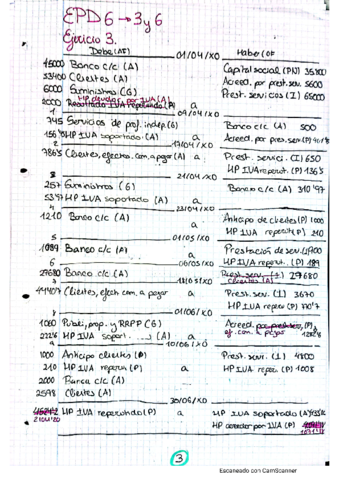 EPD 6 → 3 y 6
Ejercicio 3.
Debe (AF) 01/04/X0 Haber (OF
45000 Banco c/c (A) Capital social (PN) 35'800
53400 Clientes (A) Acreed. por prest. serv 5600
6000 Suministros (G) Prest. servicios (I) 65000
2000 HP deudor por IVA (A)
1 09/04/X0
745 Servicios de prof. indep (G) a Banco c/c (A) 500
HP IVA soportado (A) Acreed. por prest. serv (P)
2 17/04/X0
786'5 Clientes, efectos com. a pagar (A) a Prest. servici (I) 650
HP IVA reperut. (P) 136'5
3 21/04/X0
257 Suministros (G) a Banco c/c (A) 310'97
53'97 HP IVA soportado (A)
1210 Banco c/c (A) a Anticipo de clientes (P) 1000
HP IVA repercut (P) 210
5 01/05/X0
1089 Banco c/c (A) a Prestación de serv
HP IVA repercut. (P) 189
6 06/05/X0
27680 Banco c/c (A) a 27680
Clientes (A)
Clientes, efect com. a pagar a Prest. serv. (I) 3670
HP IVA reper (P) 770'7
8 01/06/X0
1060 Publi, prop. y RRPP (G) a Acreed.
HP IVA soport (A)
a 10/06/X0
1000 Anticipo clientes (P) Prest. serv. (I) 4800
210 HP IVA reperut (P) a HP IVA reper. (P) 1008
2000 Banco c/c (A)
2598 Clientes (A)
30/06/X0
HP IVA repercutido (P) a HP IVA soportado (A)
HP acreedor por IVA (P)
3
Escaneado con CamScanner